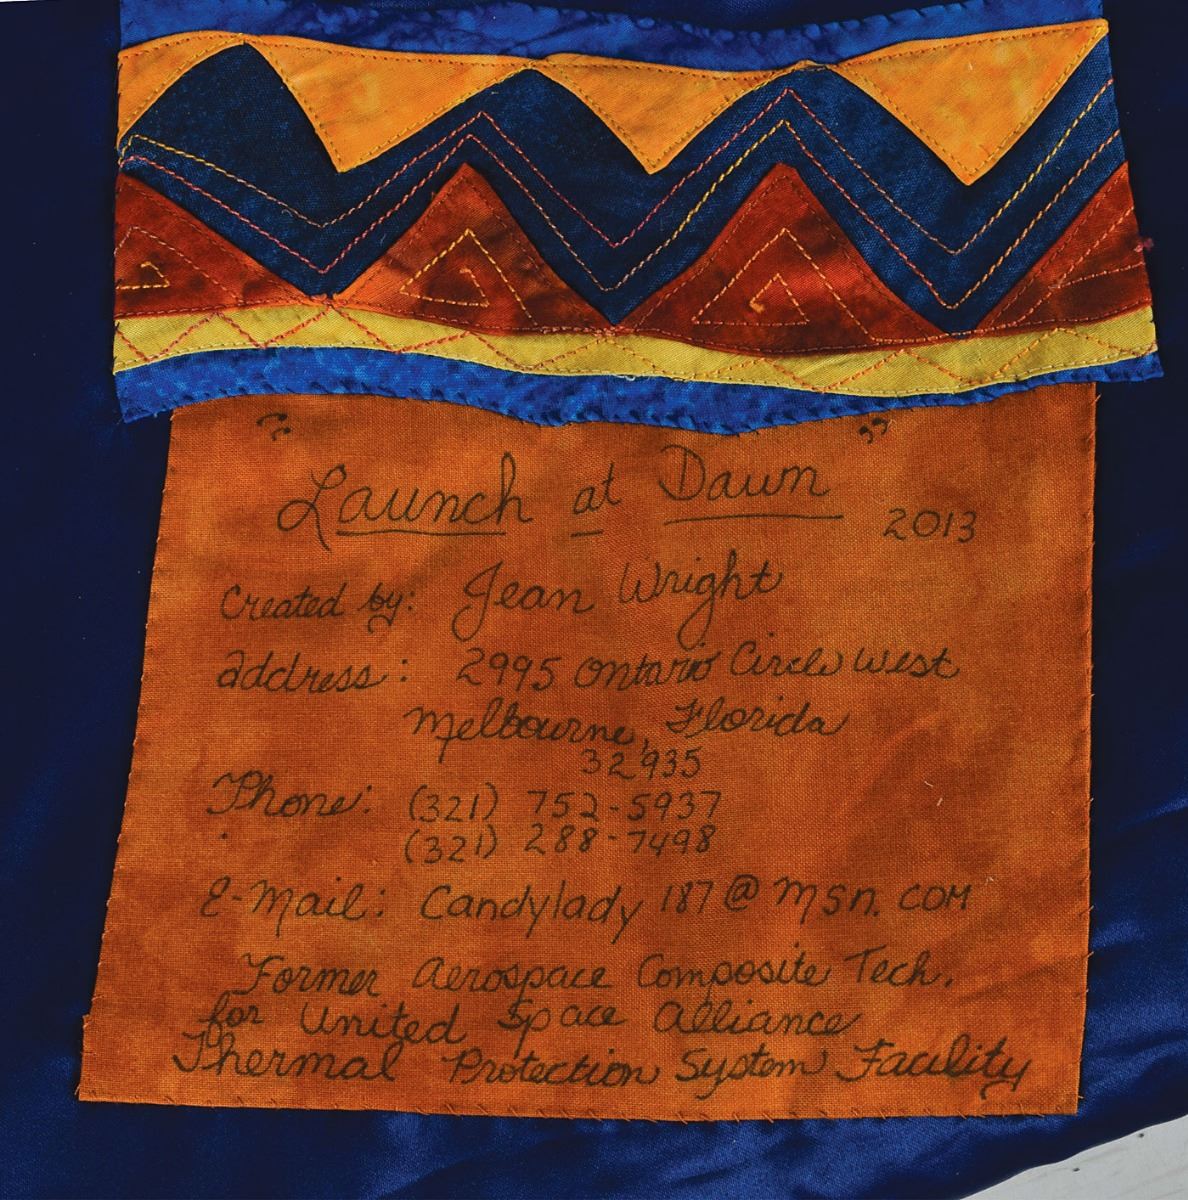 "Launch at Dawn" 2013
Created by: Jean Wright
address: 2995 Ontario Circle West
Melbourne, Florida
32935
Phone: (321) 752-5937
(321) 288-7498
E-Mail: Candylady187@msn.com
Former Aerospace Composite Tech.
for United Space Alliance
Thermal Protection System Facility